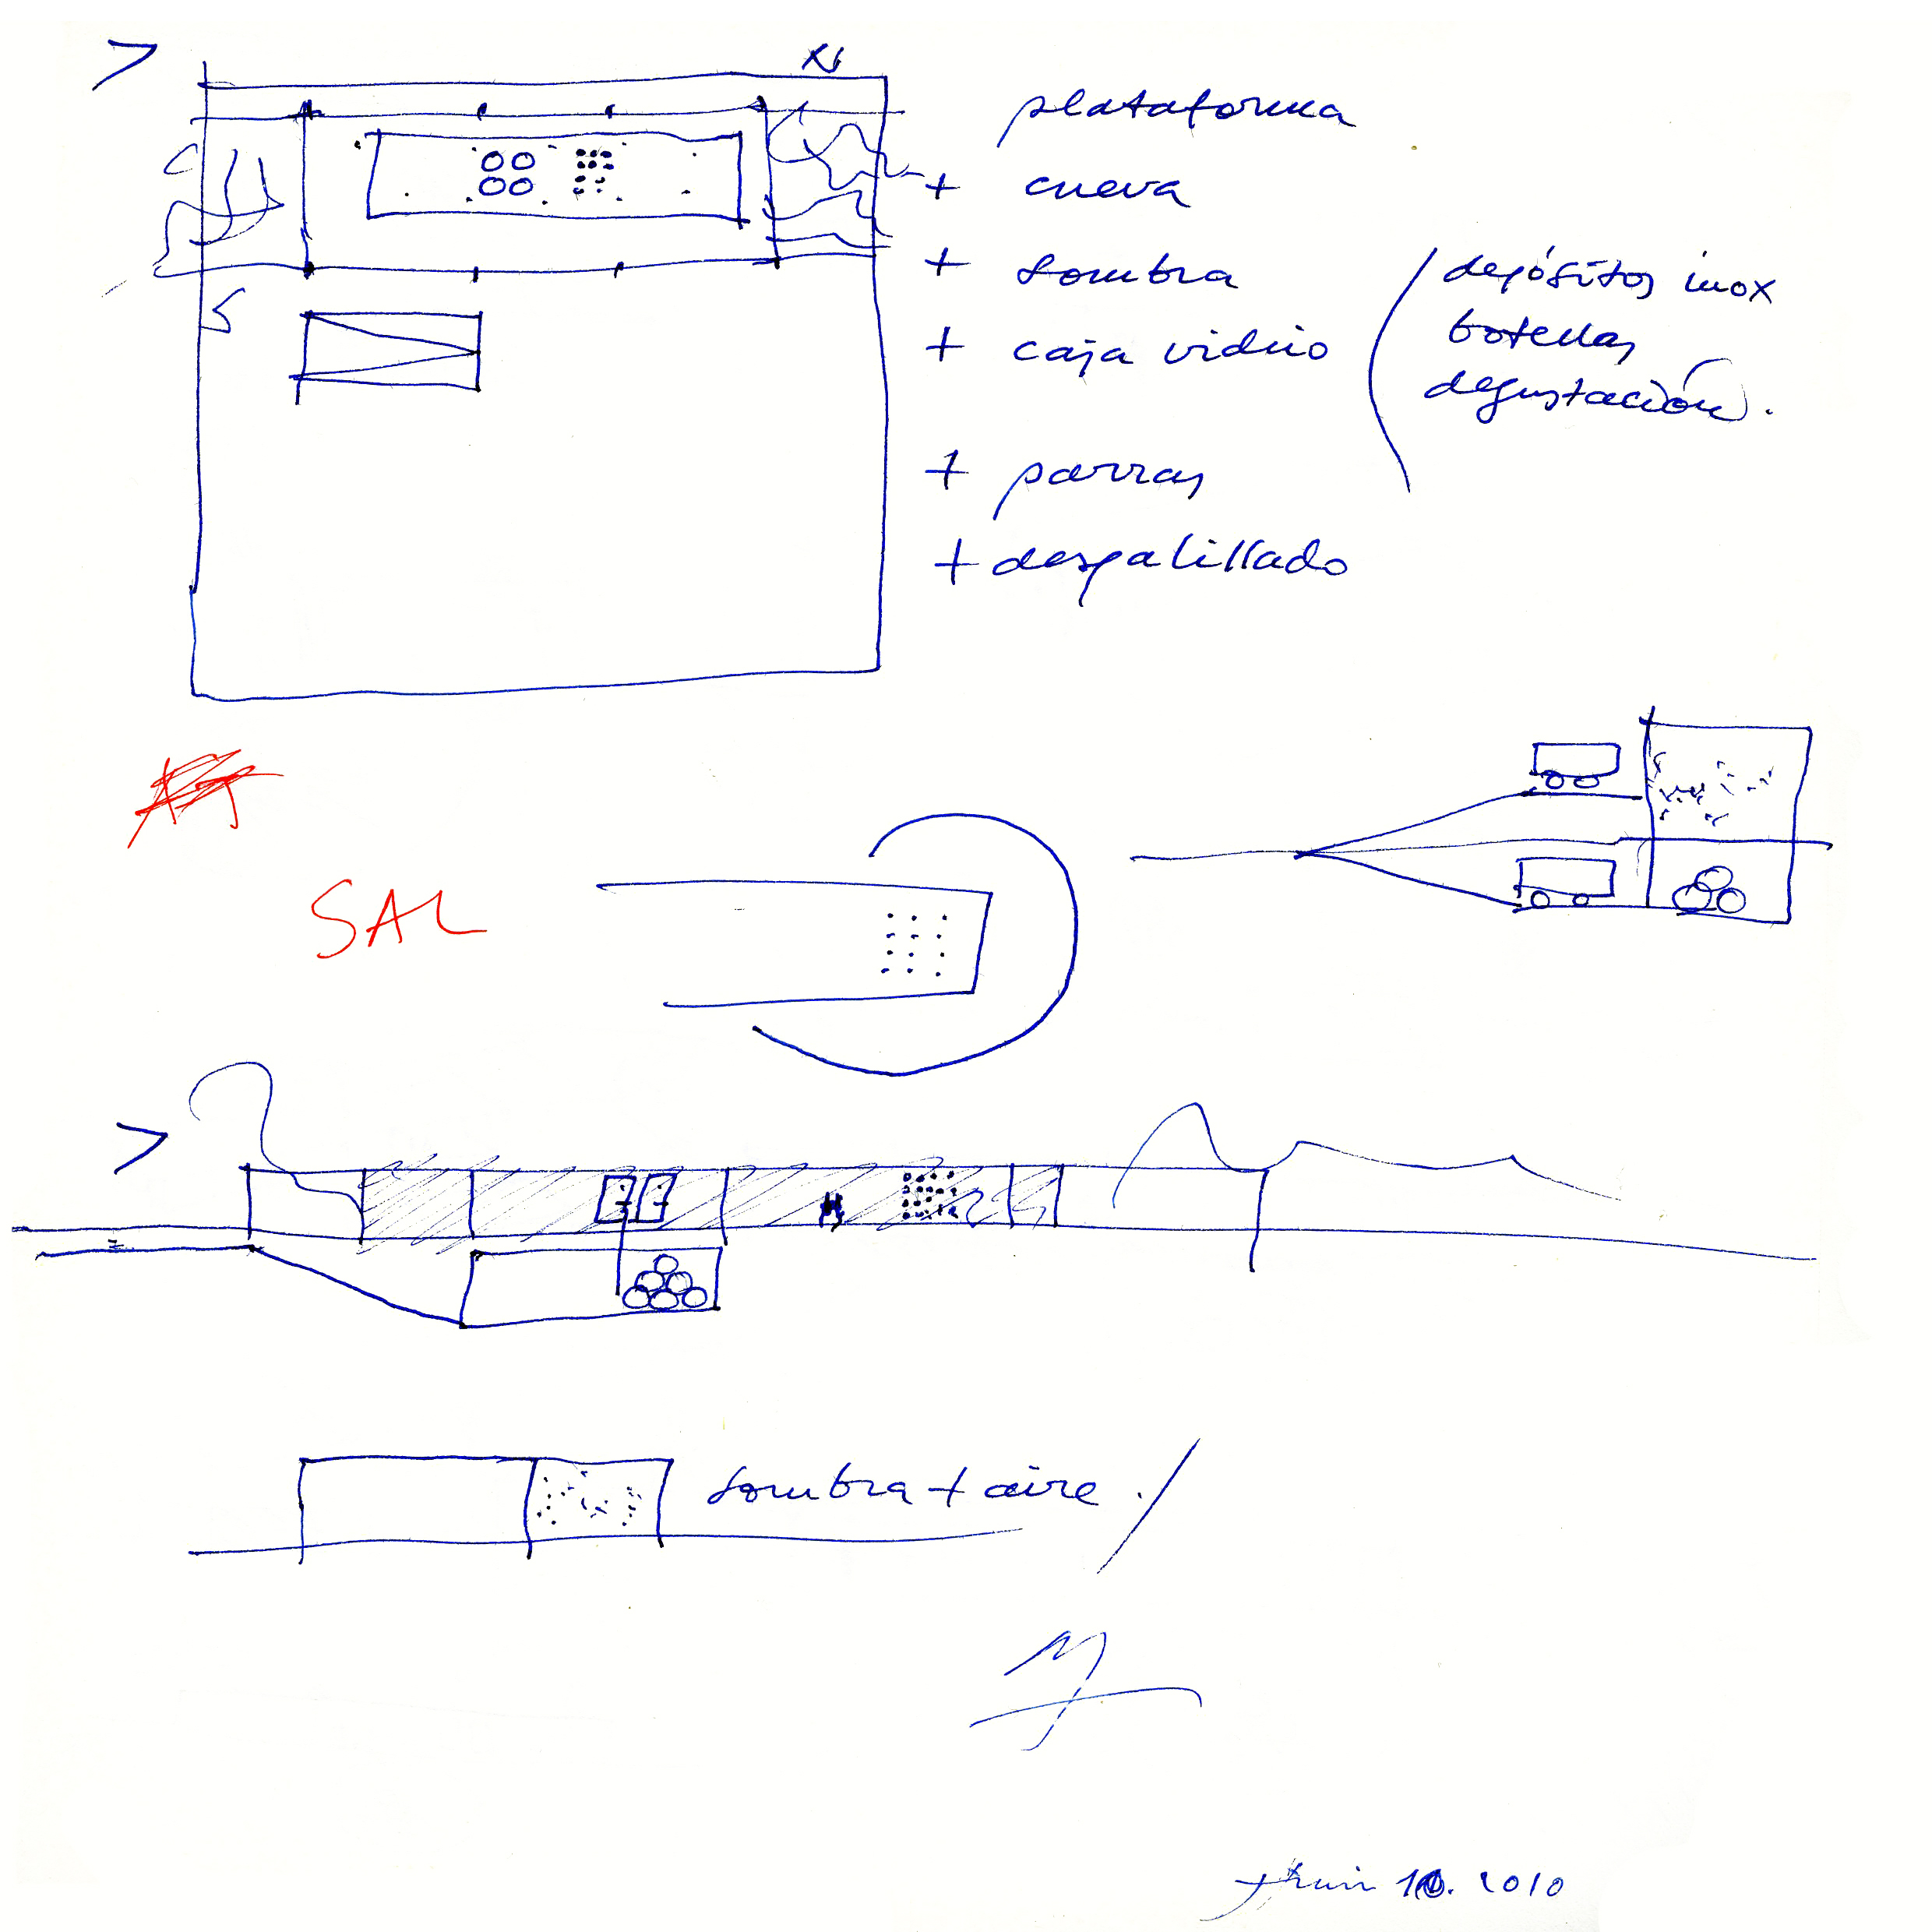 plataforma
+ cueva
+ sombra
+ caja vidrio
depósitos inox
botellas
degustación.
+ parras
+ despalillado
SAL
sombra + aire.
2010